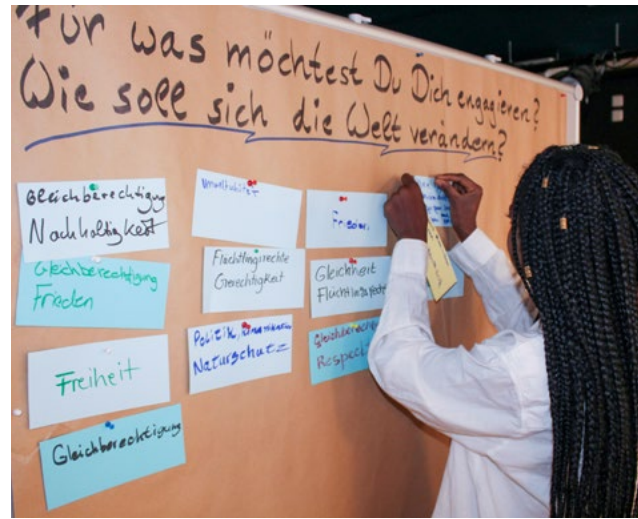 Für was möchtest Du Dich engagieren?
Wie soll sich die Welt verändern?
Gleichberechtigung
Nachhaltigkeit
Gleichberechtigung
Frieden
Freiheit
Gleichberechtigung
Umweltschutz
Flüchtlingsrechte
Gerechtigkeit
Politik,
Naturschutz
Frieden
Gleichheit
Respekt